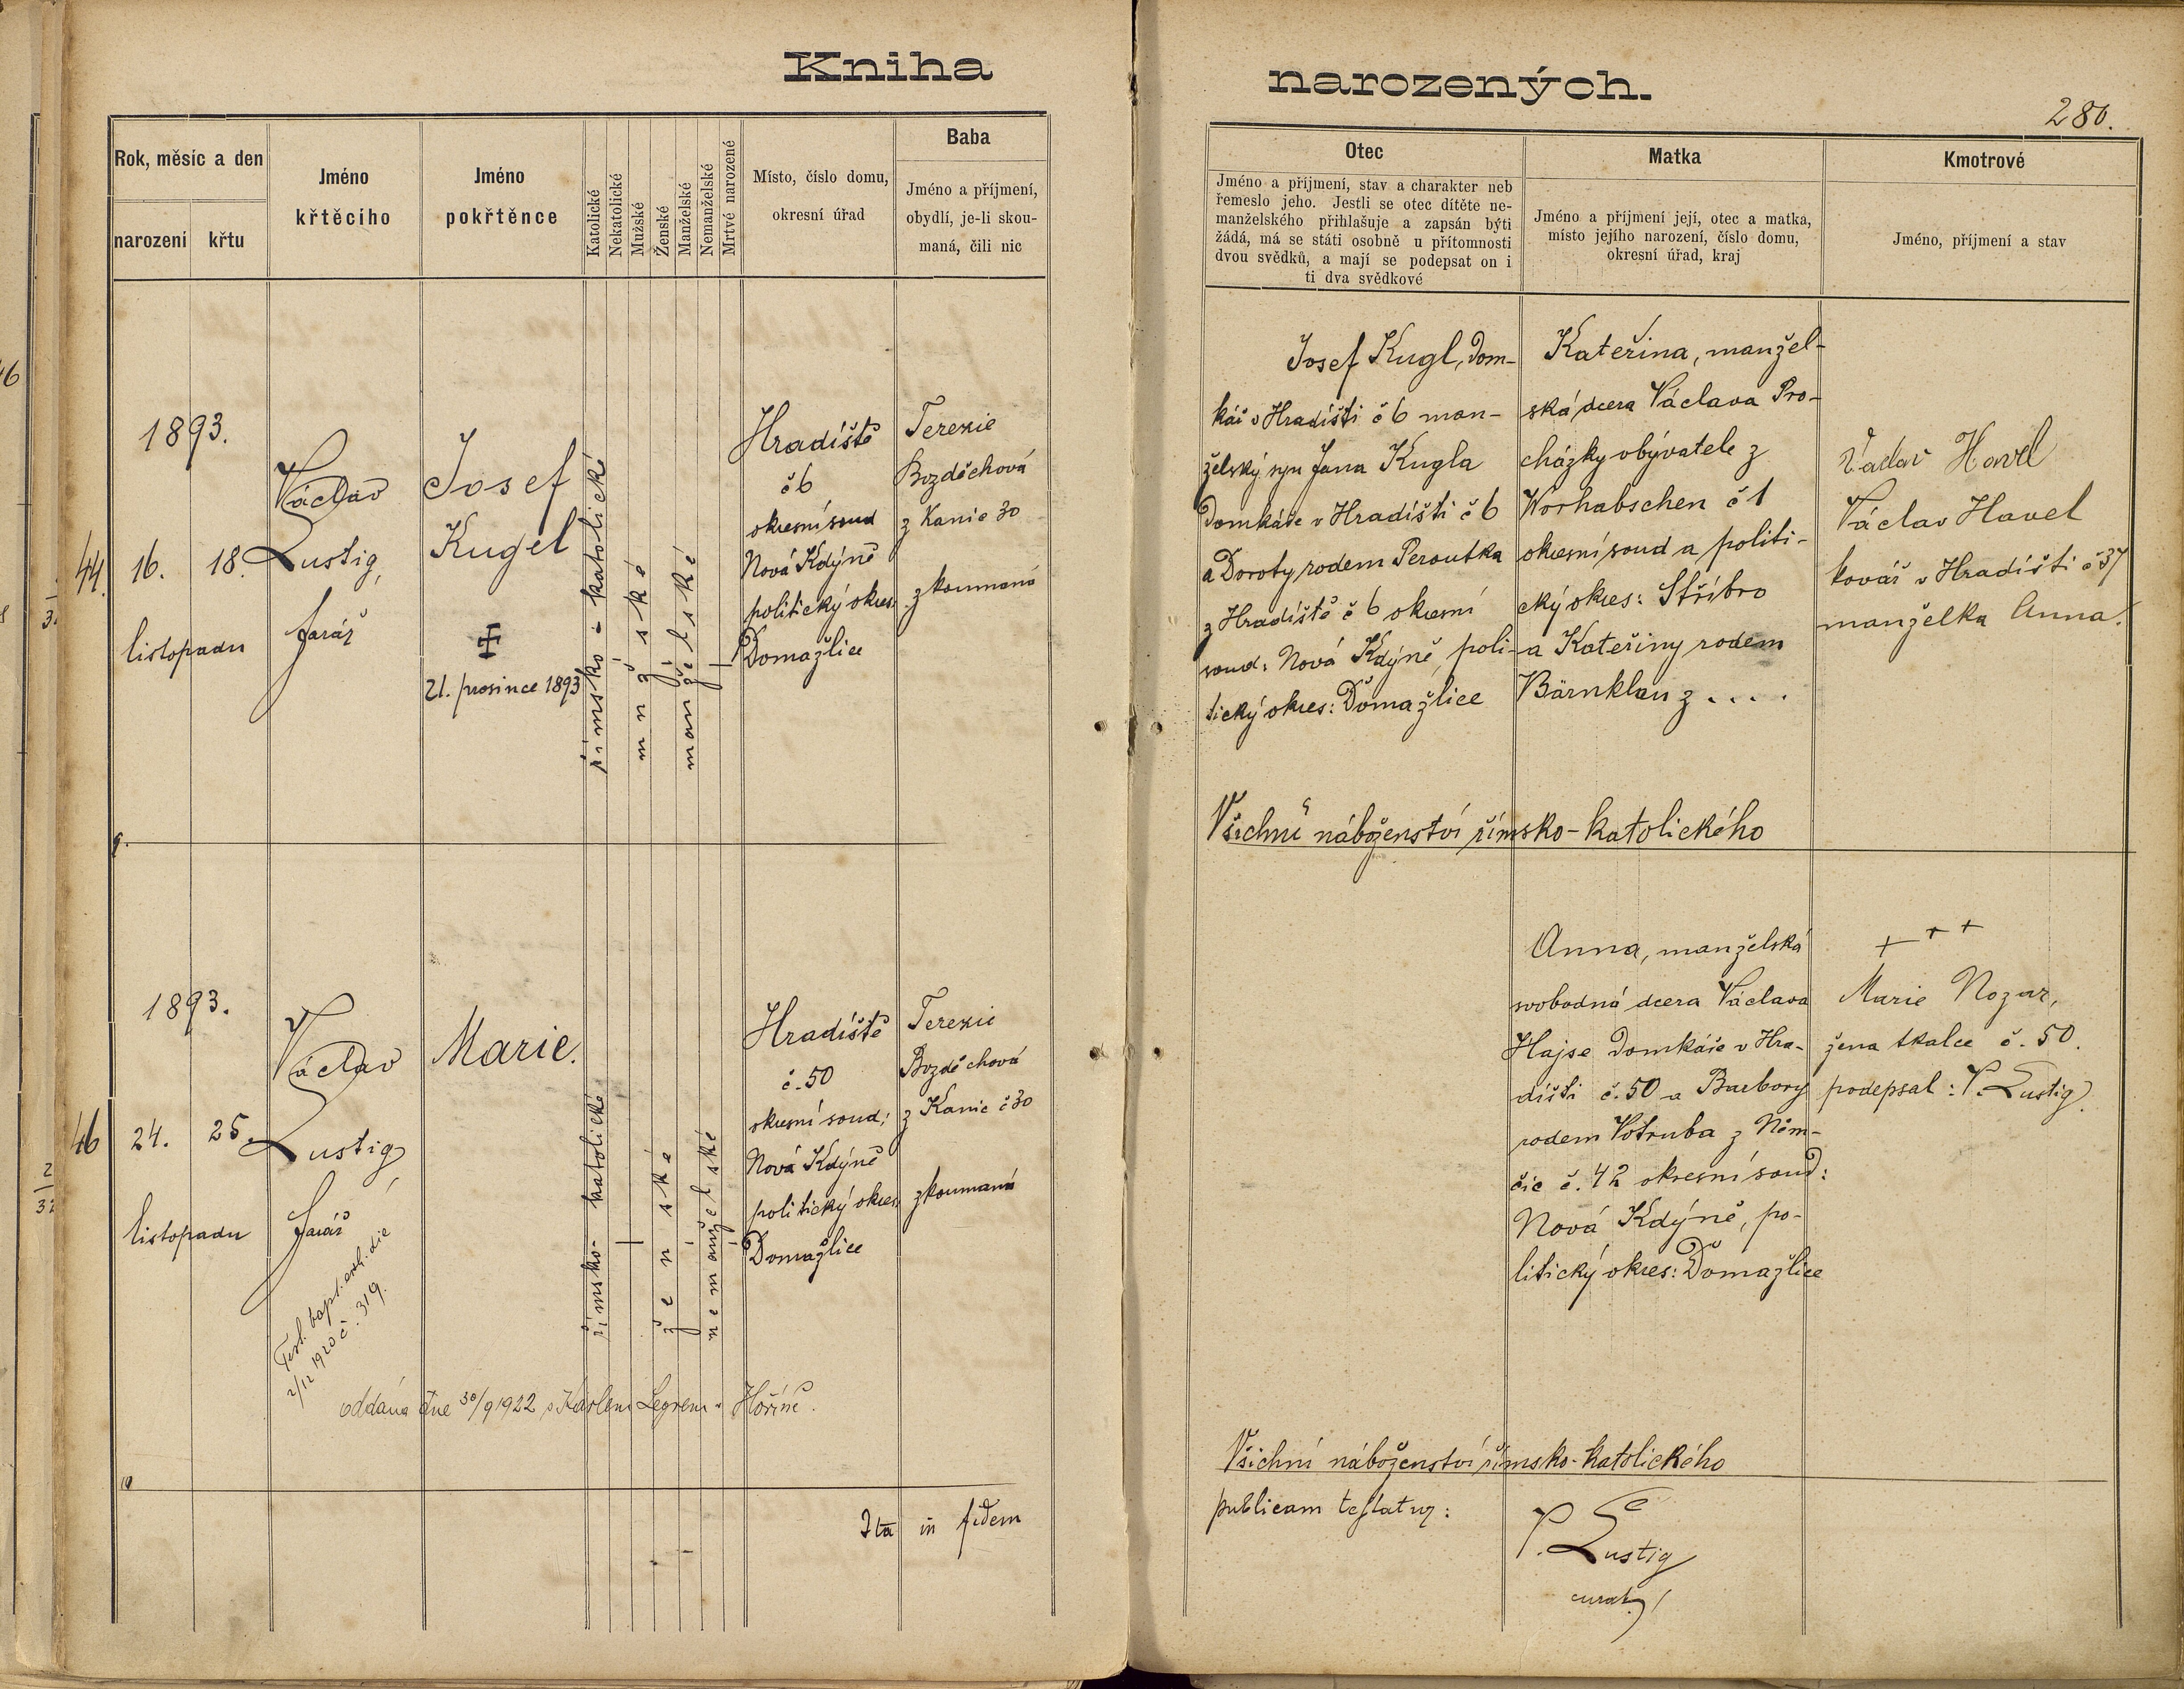 Kniha narozených.
280.
Rok, měsíc a den
narození
křtu
Jméno
křtěcího
Jméno
pokřtěnce
Katolické
Nekatolické
Mužské
Ženské
Manželské
Nemanželské
Mrtvé narozené
Místo, číslo domu,
okresní úřad
Baba
Jméno a příjmení,
obydlí, je-li skou-
maná, čili nic
Otec
Jméno a příjmení, stav a charakter neb
řemeslo jeho. Jestli se otec dítěte ne-
manželského přihlašuje a zapsán býti
žádá, má se státi osobně u přítomnosti
dvou svědků, a mají se podepsat on i
ti dva svědkové
Matka
Jméno a příjmení její, otec a matka,
místo jejího narození, číslo domu,
okresní úřad, kraj
Kmotrové
Jméno, příjmení a stav
44.
1893.
16. 18.
listopadu
Václav
Lustig,
farář
Josef
Kugel
21. prosince 1893
římsko-katolické
mužské
manželské
Hradiště
č 6
okresní soud
Nová Kdýně
politický okres
Domažlice
Terezie
Bozděchová
z Kanic 30
zkoumaná
Josef Kugl, dom-
kář v Hradišti č 6 man-
želský syn Jana Kugla
domkáře v Hradišti č 6
a Doroty rodem Peroutka
z Hradiště č 6 okresní
soud: Nová Kdýně, poli-
tický okres: Domažlice
Kateřina, manžel-
ská dcera Václava Pro-
cházky obývatele z
Worhabschen č 1
okresní soud a politi-
cký okres: Stříbro
a Kateřiny rodem
Bärnklau z . . . .
Václav Havel
Václav Havel
kovář v Hradišti č 37
manželka Anna.
Všichni náboženství římsko-katolického
9.
46
1893.
24. 25.
listopadu
Václav
Lustig
farář
Test. bapt. exh. die
2/12 1920 č. 319.
Marie.
římsko-katolické
ženské
nemanželské
Hradiště
č. 50
okresní soud:
Nová Kdýně
politický okres
Domažlice
Terezie
Bozděchová
z Kanic č 30
zkoumaná
Anna, manželská
svobodná dcera Václava
Hajse domkáře v Hra-
dišti č. 50 a Barbory
rodem Votruba z Něm-
čic č. 42 okresní soud:
Nová Kdýně, po-
litický okres: Domažlice
+ + +
Marie Nozar,
žena tkalce č. 50.
podepsal: V. Lustig
oddána dne 30/9 1922 s Karlem Legrem v Hoříně.
Všichni náboženství římsko-katolického
10
Ita in fidem
publicam testatur:
V. Lustig
curat.